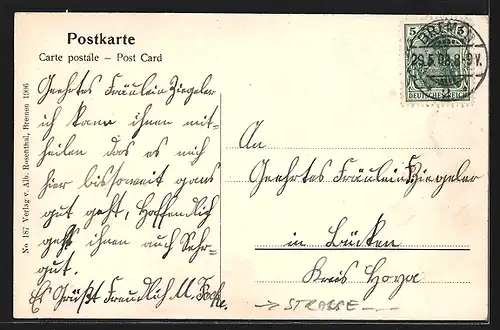 Postkarte
Carte postale – Post Card
5
BREMEN
29.5.08.8-9V.
DEUTSCHES REICH
No 187 Verlag v. Alb. Rosenthal, Bremen 1906
Geehrtes Fräulein Ziegeler
ich kann ihnen mit-
theilen das es mich
hier bissoweit gans
gut geht, Hoffendlich
geht ihnen auch Sehr
gut.
Es Grüßt Freundlich M.
An
Geehrtes Fräulein Ziegeler
in Bücken
Kreis Hoya
STRASSE